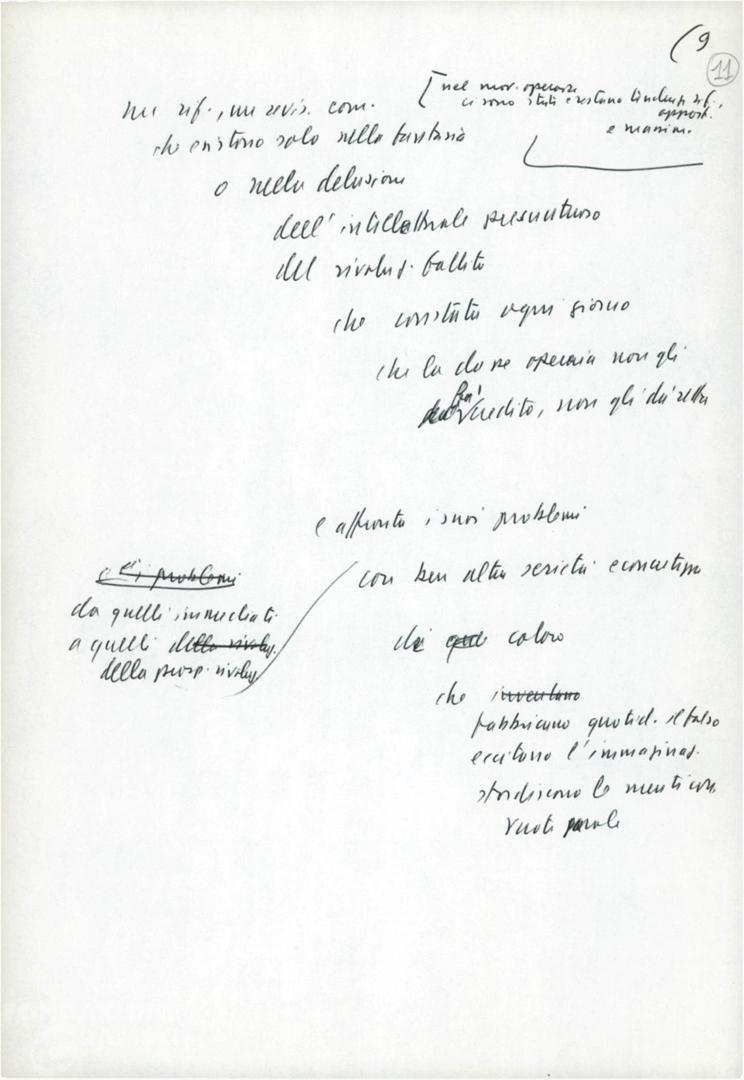 (9
11
[nel mov. operaio
ci sono stati e restano tendenze rif.,
opport.
e massim.
un rif., un revis. com.
che esistono solo nella fantasia
o nella delusione
dell'intellettuale presuntuoso
del rivoluz. fallito
che constata ogni giorno
che la classe operaia non gli
fa credito, non gli dà retta
e affronta i suoi problemi
con ben altra serietà e concretezza
e i problemi
da quelli immediati
a quelli della rivoluz.
della prosp. rivoluz.
di que coloro
che inventano
fabbricano quotid. il falso
eccitano l'immaginaz.
stordiscono le menti con
vuote parole